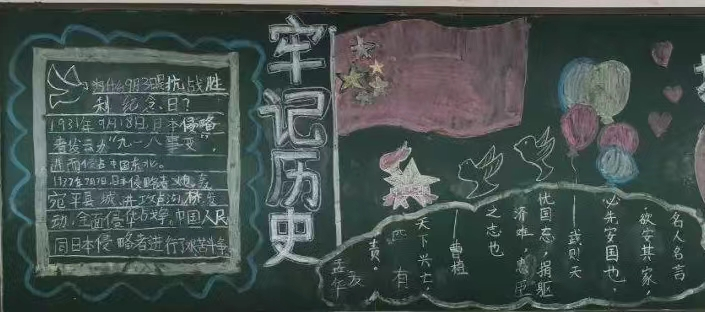 为什么9月3是抗战胜
利纪念日？
1931年9月18日,日本侵略
者发动"九一八事变",
进而侵占中国东北。
1937年7月7日,日本侵略者炮轰
宛平县城,进攻卢沟桥,发
动全面侵华战争。中国人民
同日本侵略者进行了斗争
牢记历史
名人名言
欲安其家,
必先安国也。
——武则天
忧国忘,捐躯
济难,忠臣
之志也
——曹植
天下兴亡,
匹 有
责。